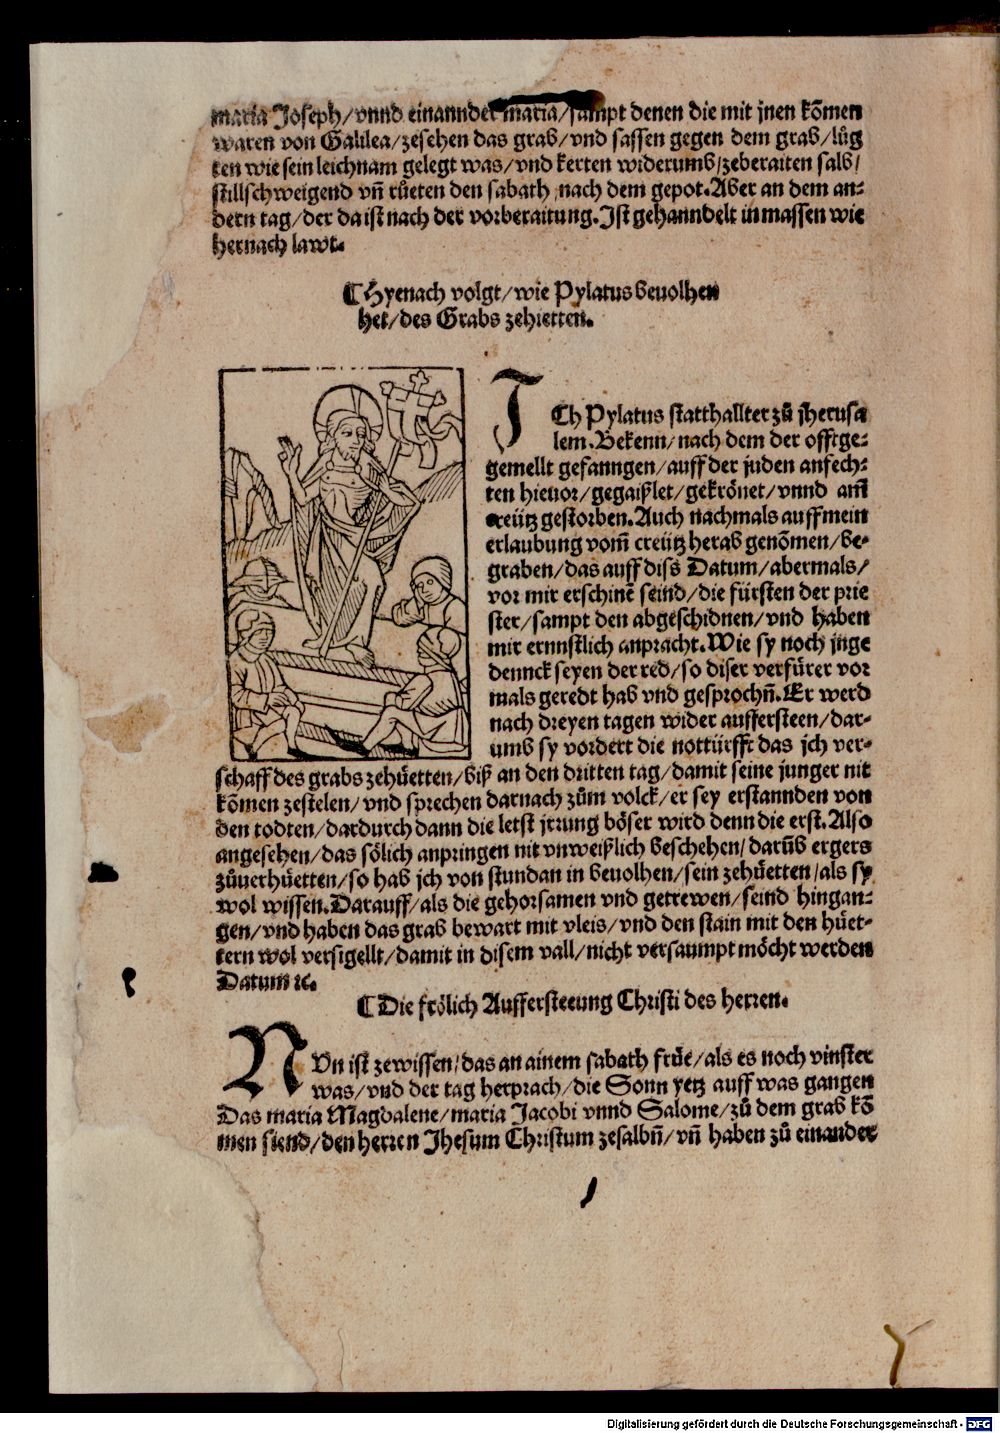 maria Joseph/vnnd einannder maria/sampt denen die mit jnen kōmen
waren von Galilea/zesehen das grab/vnd sassen gegen dem grab/lůg
ten wie sein leichnam gelegt was/vnd kerten widerumb/zeberaiten salb/
stillschweigend vn̄ růeten den sabath nach dem gepot. Aber an dem an⸗
dern tag/der da ist nach der vorberaitung. Ist gehanndelt in massen wie
hernach lawt.
¶ Hyenach volgt/wie Pylatus beuolhen
het/des Grabs zehietten.
ICh Pylatus statthallter zů jherusa
lem. Bekenn/nach dem der offtge⸗
gemellt gefanngen/auff der juden anfech⸗
ten hieuor/gegaißlet/gekrönet/vnnd am̄
creütz gestorben. Auch nachmals auff mein
erlaubung vom̄ creütz herab genōmen/be⸗
graben/das auff diss Datum/abermals/
vor mir erschinē seind/die fürsten der prie
ster/sampt den abgeschidnen/vnd haben
mir ernnstlich anpracht. Wie sy noch jnge
dennck seyen der red/so diser verfürer vor
mals geredt hab vnd gesprochn̄. Er werd
nach dreyen tagen wider aufferstēen/dar⸗
umb sy vordert die notturfft das jch ver⸗
schaff des grabs zehüetten/biß an den dritten tag/damit seine junger nit
kōmen zestelen/vnd sprechen darnach zům volck/er sey erstannden von
den todten/dardurch dann die letst jrrung böser wird denn die erst. Also
angesehen/das sölich anpringen nit vnweißlich beschehen/darūb ergers
zůuerhüetten/so hab jch von stundan in beuolhen/sein zehüetten/als sy
wol wissen. Darauff/als die gehorsamen vnd getrewen/seind hingan⸗
gen/vnd haben das grab bewart mit vleis/vnd den stain mit den hüet⸗
tern wol versigellt/damit in disem vall/nicht versaumpt möcht werden
Datum ꝛc.
¶ Die frölich Aufferstēung Christi des herren.
NVn ist zewissen/das an ainem sabath früe/als es noch vinster
was/vnd der tag herprach/die Sonn yetz auff was gangen
Das maria Magdalene/maria Jacobi vnnd Salome/zů dem grab kō
men siend/den herren Jhesum Christum zesalbn̄/vn̄ haben zů einander
Digitalisierung gefördert durch die Deutsche Forschungsgemeinschaft - DFG